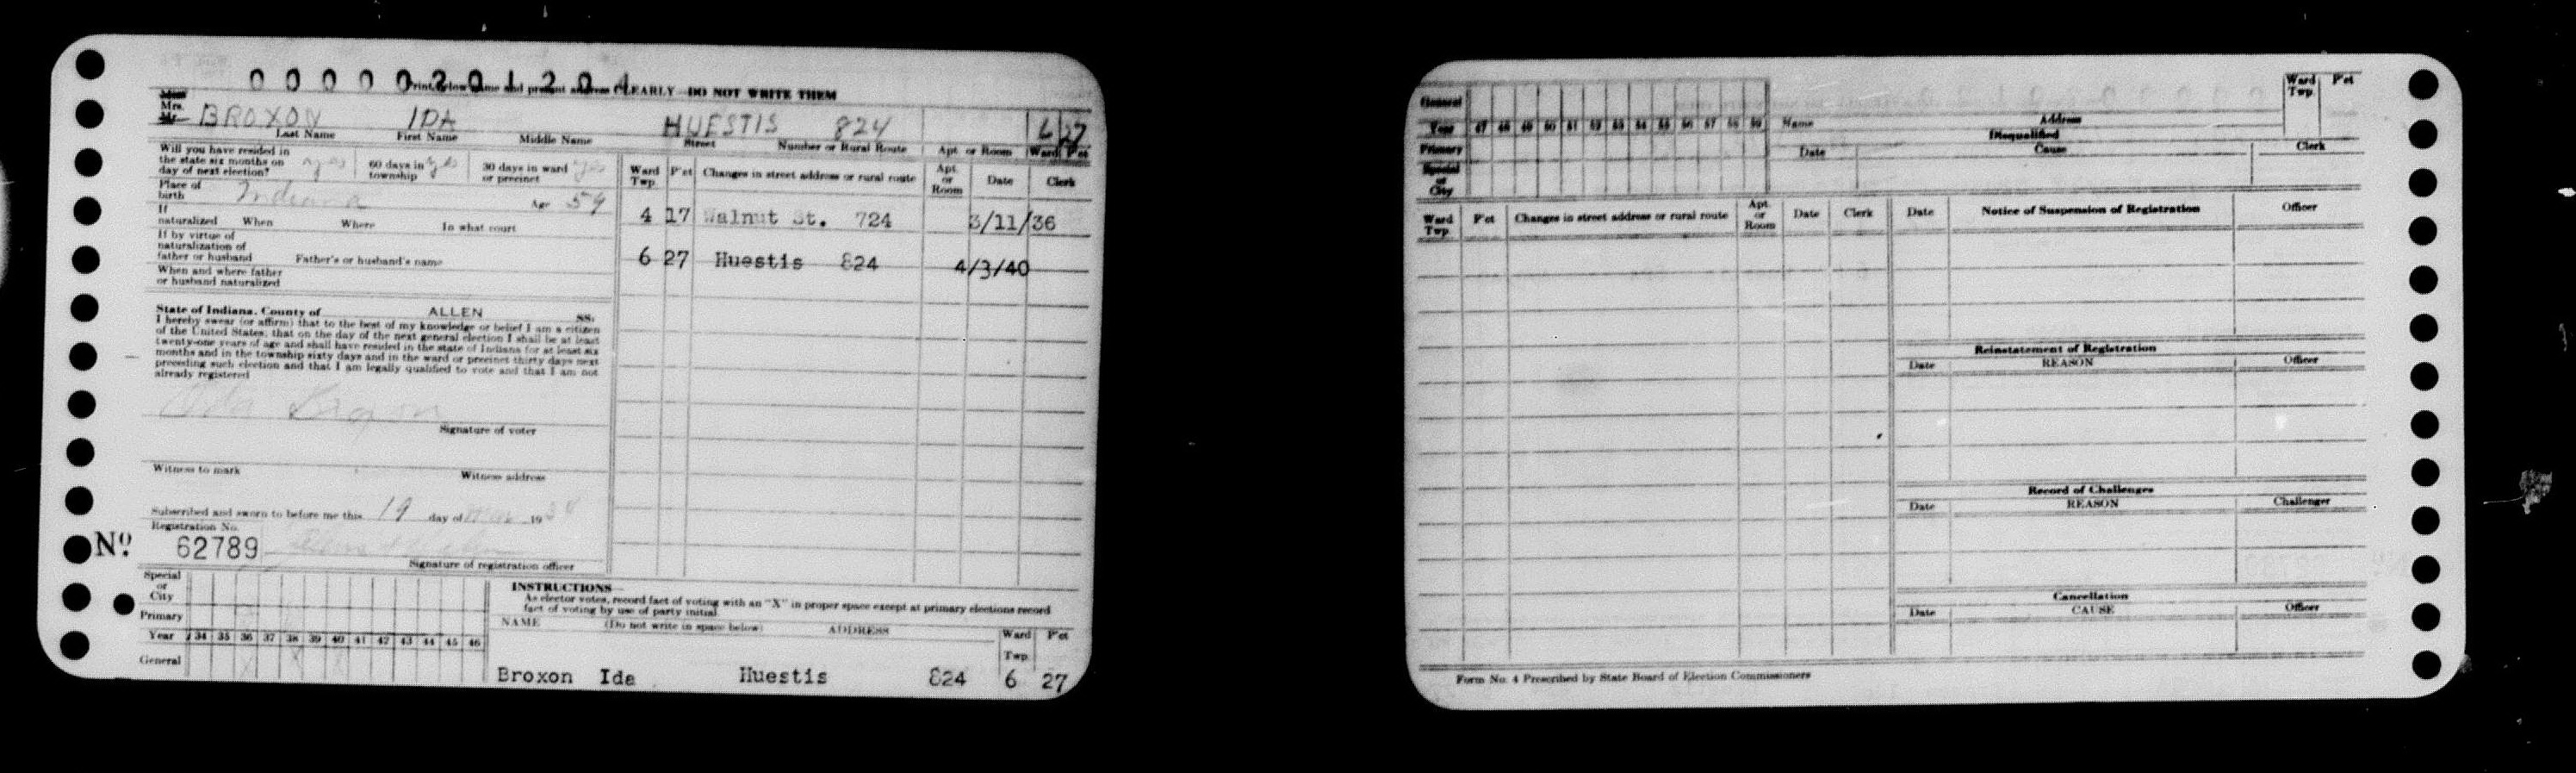 0 0 0 0 0 2 0 1 2 0 1
Print below name and present address CLEARLY DO NOT WRITE THEM
Miss
Mrs.
Mr. BROXON IDA HUESTIS 824 6 27
Last Name First Name Middle Name Street Number or Rural Route Apt. or Room Ward P'ct
Will you have resided in
the state six months on
day of next election? yes 60 days in township yes 30 days in ward or precinct yes
Place of birth Indiana Age 59
If naturalized When Where In what court
If by virtue of
naturalization of
father or husband Father's or husband's name
When and where father
or husband naturalized
Ward Twp. P'ct Changes in street address or rural route Apt. or Room Date Clerk
4 17 Walnut St. 724 3/11/36
6 27 Huestis 824 4/3/40
State of Indiana, County of ALLEN SS:
I hereby swear (or affirm) that to the best of my knowledge or belief I am a citizen
of the United States; that on the day of the next general election I shall be at least
twenty-one years of age and shall have resided in the state of Indiana for at least six
months and in the township sixty days and in the ward or precinct thirty days next
preceding such election and that I am legally qualified to vote and that I am not
already registered
Signature of voter
Witness to mark Witness address
Subscribed and sworn to before me this 19 day of 19
Registration No.
No. 62789
Signature of registration officer
Special
or
City
Primary
Year 34 35 36 37 38 39 40 41 42 43 44 45 46
General X X X
INSTRUCTIONS
As elector votes, record fact of voting with an "X" in proper space except at primary elections record
fact of voting by use of party initial.
NAME (Do not write in space below) ADDRESS Ward Twp. P'ct
Broxon Ida Huestis 824 6 27
General
Year 47 48 49 50 51 52 53 54 55 56 57 58 59
Primary
Special
or
City
Name Address Ward Twp. P'ct
Disqualified
Date Cause Clerk
Ward Twp. P'ct Changes in street address or rural route Apt. or Room Date Clerk
Date Notice of Suspension of Registration Officer
Reinstatement of Registration
Date REASON Officer
Record of Challenges
Date REASON Challenger
Cancellation
Date CAUSE Officer
Form No. 4 Prescribed by State Board of Election Commissioners